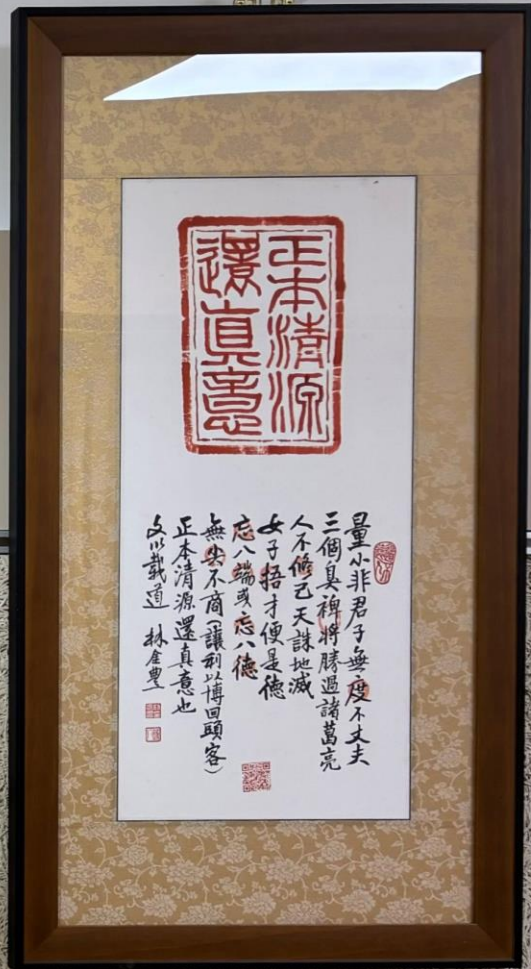 正本清源
還真意
量小非君子無度不丈夫
三個臭裨將勝過諸葛亮
人不修己天誅地滅
女子捂才便是德
忘八端或忘八德
無尖不商(讓利以博回頭客)
正本清源還真意也
文以載道 林金豊